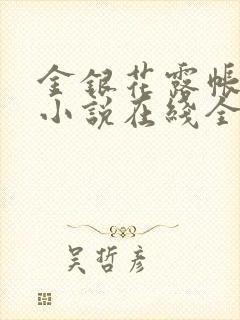 金银花露帐
小说在线全
吴哲彦